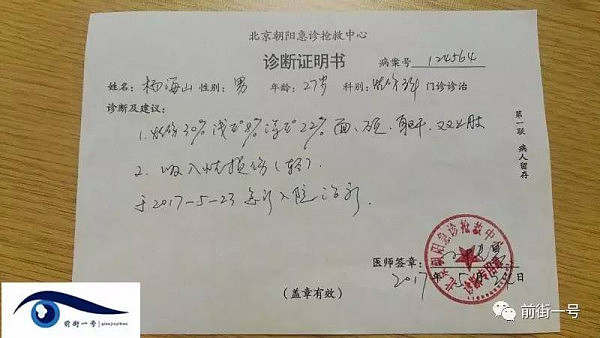 北京朝阳急诊抢救中心
诊断证明书
病案号 124564
姓名：杨海山 性别：男 年龄：27岁 科别：烧伤科 门诊诊治
诊断及建议：
1. 烧伤30% 浅Ⅱ°8% 深Ⅱ°22% 面、颈、躯干、双上肢
2. 吸入性损伤（轻）.
于2017-5-23急诊入院治疗.
第一联 病人留存
医师签章：
2017年5月 日
北京朝阳急诊抢救中心
诊断专用章
（盖章有效）
前街一号 qianjieyihao
前街一号